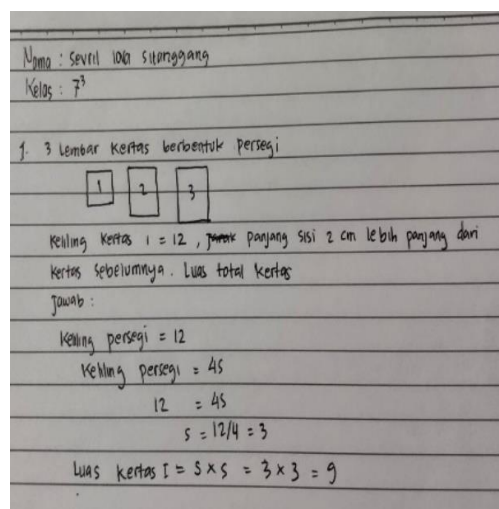 Nama : Sevril loa Sitanggang
Kelas : 7³
1. 3 Lembar Kertas berbentuk persegi
1 2 3
Keliling Kertas 1 = 12 , panjang sisi 2 cm lebih panjang dari
Kertas Sebelumnya. Luas total Kertas
Jawab :
Keliling persegi = 12
Keliling persegi = 4s
12 = 4s
s = 12/4 = 3
Luas Kertas I = s x s = 3 x 3 = 9